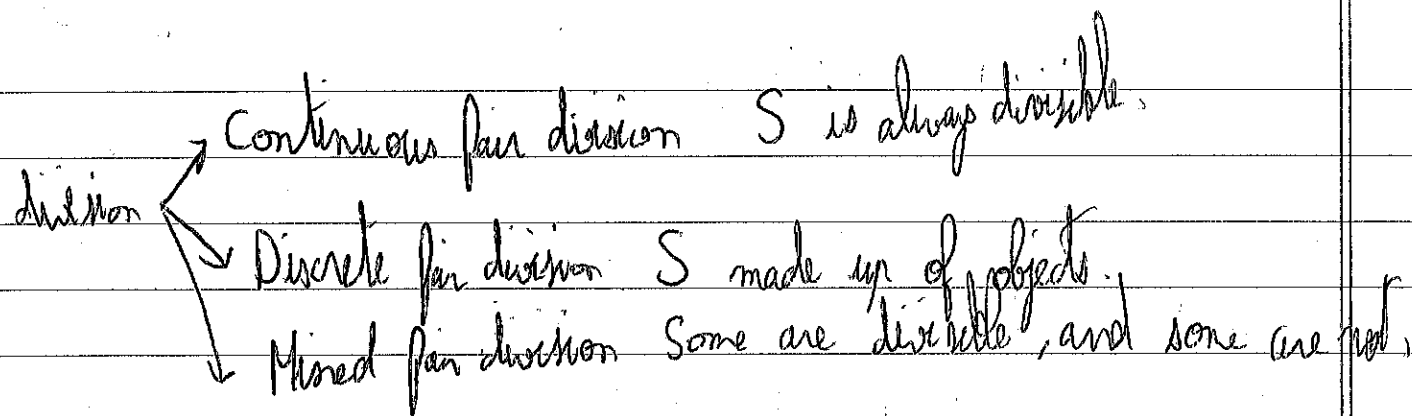 Continuous fair division S is always divisible.
division
Discrete fair division S made up of objects.
Mixed fair division Some are divisible, and some are not.